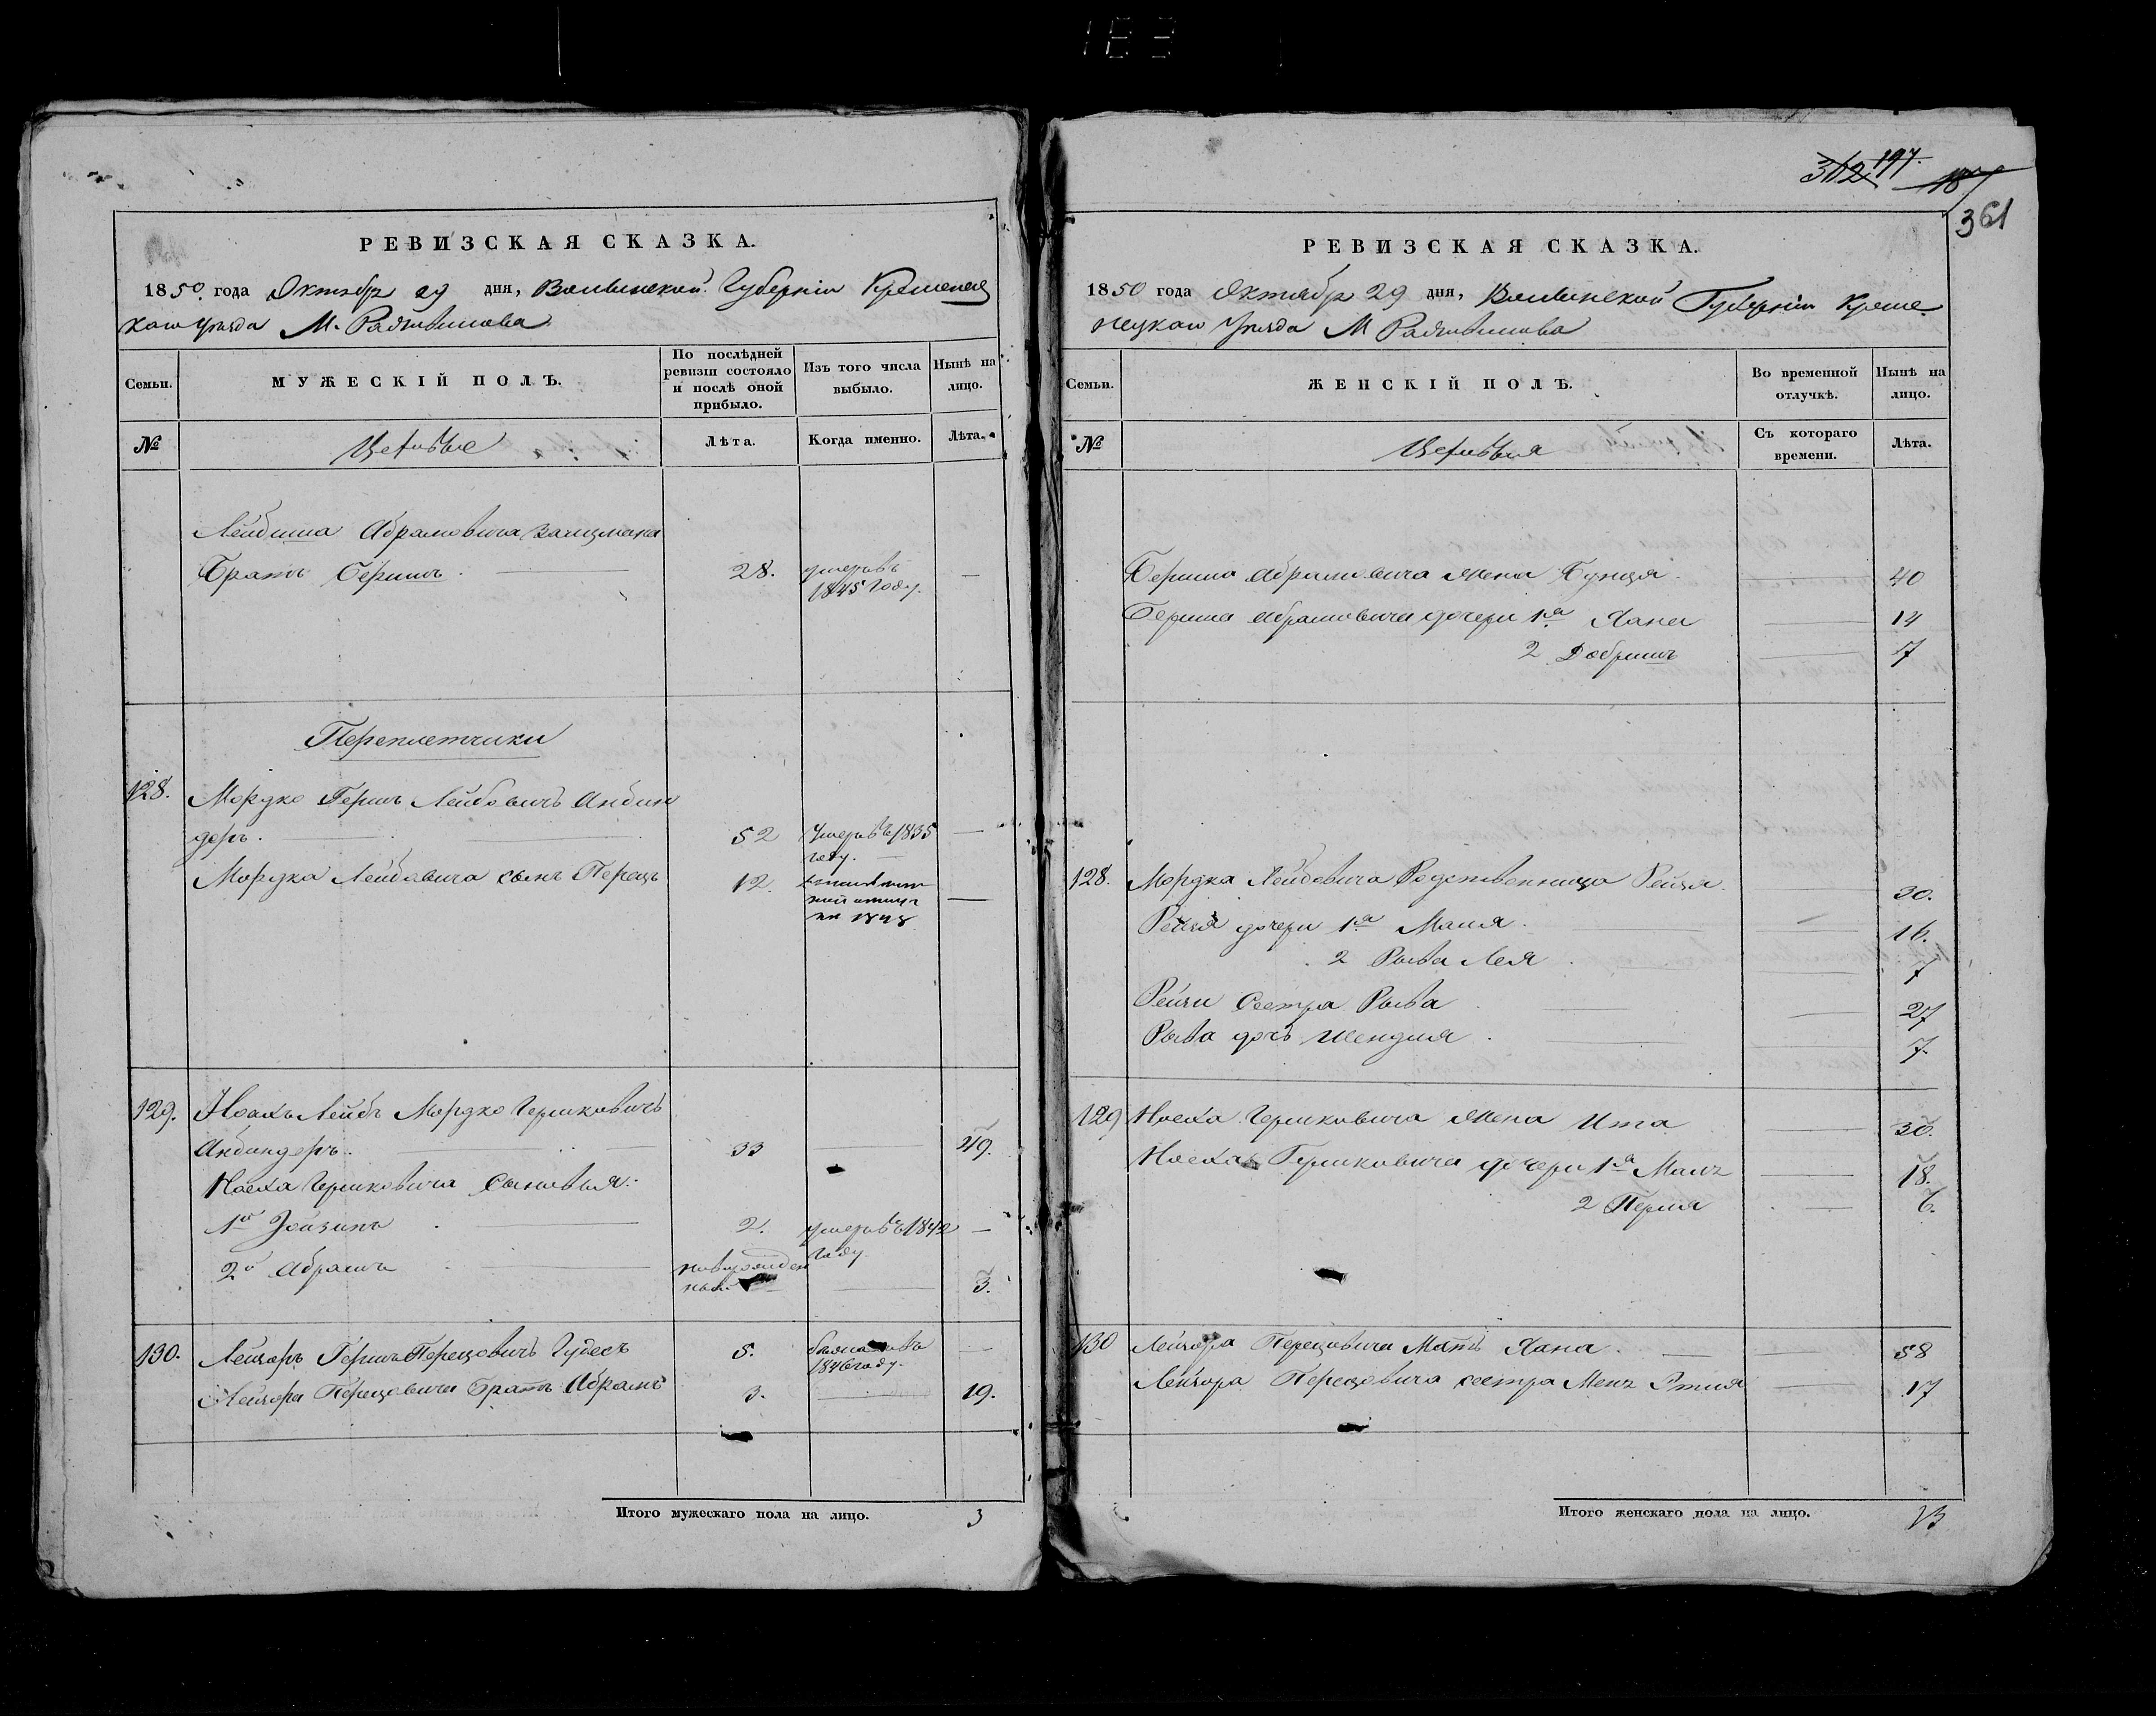 183
РЕВИЗСКАЯ СКАЗКА.
1850. года Октября 29 дня, Волынской Губерніи Кременец
каго Уѣзда М. Радзивилова
Семьи.
МУЖЕСКІЙ ПОЛЪ.
По послѣдней ревизіи состояло и послѣ оной прибыло.
Изъ того числа выбыло.
Нынѣ на лицо.
№
Цеховые
Лѣта.
Когда именно.
Лѣта.
Лейбиша Абрамовича
Братъ Беришъ 28. умеръ въ 1845 году. —
Переплетчики
128. Мордко Гершъ Лейбовичъ Анбин
деръ. 52 Умеръ въ 1835 году. —
Мордка Лейбовича сынъ Перецъ 12. —
129. Ноахъ Лейбъ Мордко Гершковичъ
Анбиндеръ. 33 — 49.
Ноаха Гершковича Сыновья:
1й 2. умеръ въ 1842 году. —
2й Абрамъ новорожден ный — 3.
130. Лейзоръ Гершъ Перецовичъ Гудесъ 5. 1846 году. —
Лейзора Перецовича Братъ Абрамъ 3. — 19.
Итого мужескаго пола на лицо. 3
312 197. 187
361
РЕВИЗСКАЯ СКАЗКА.
1850 года Октября 29 дня, Волынской Губерніи Креме
нецкаго Уѣзда М Радзивилова
Семьи.
ЖЕНСКІЙ ПОЛЪ.
Во временной отлучкѣ.
Нынѣ на лицо.
№
Цеховыя
Съ котораго времени.
Лѣта.
Бериша Абрамовича Жена — 40
Бериша Абрамовича дочери 1я Хана — 14
2 Добришъ — 7
128. Мордка Лейбовича Родственница Рейзя. 30.
Рейзи дочери 1я Маля. — 16.
2 Рыва Лея — 7
Рейзи Сестра Рыва — 27
Рыва дочь Шендля — 7.
129 Ноаха Гершковича Жена Ита — 36.
Ноаха Гершковича дочери 1я — 18.
2 Перля — 6.
130 Лейзора Перецовича Мать Хана — 58
Лейзора Перецовича сестра — 17
Итого женскаго пола на лицо. 13